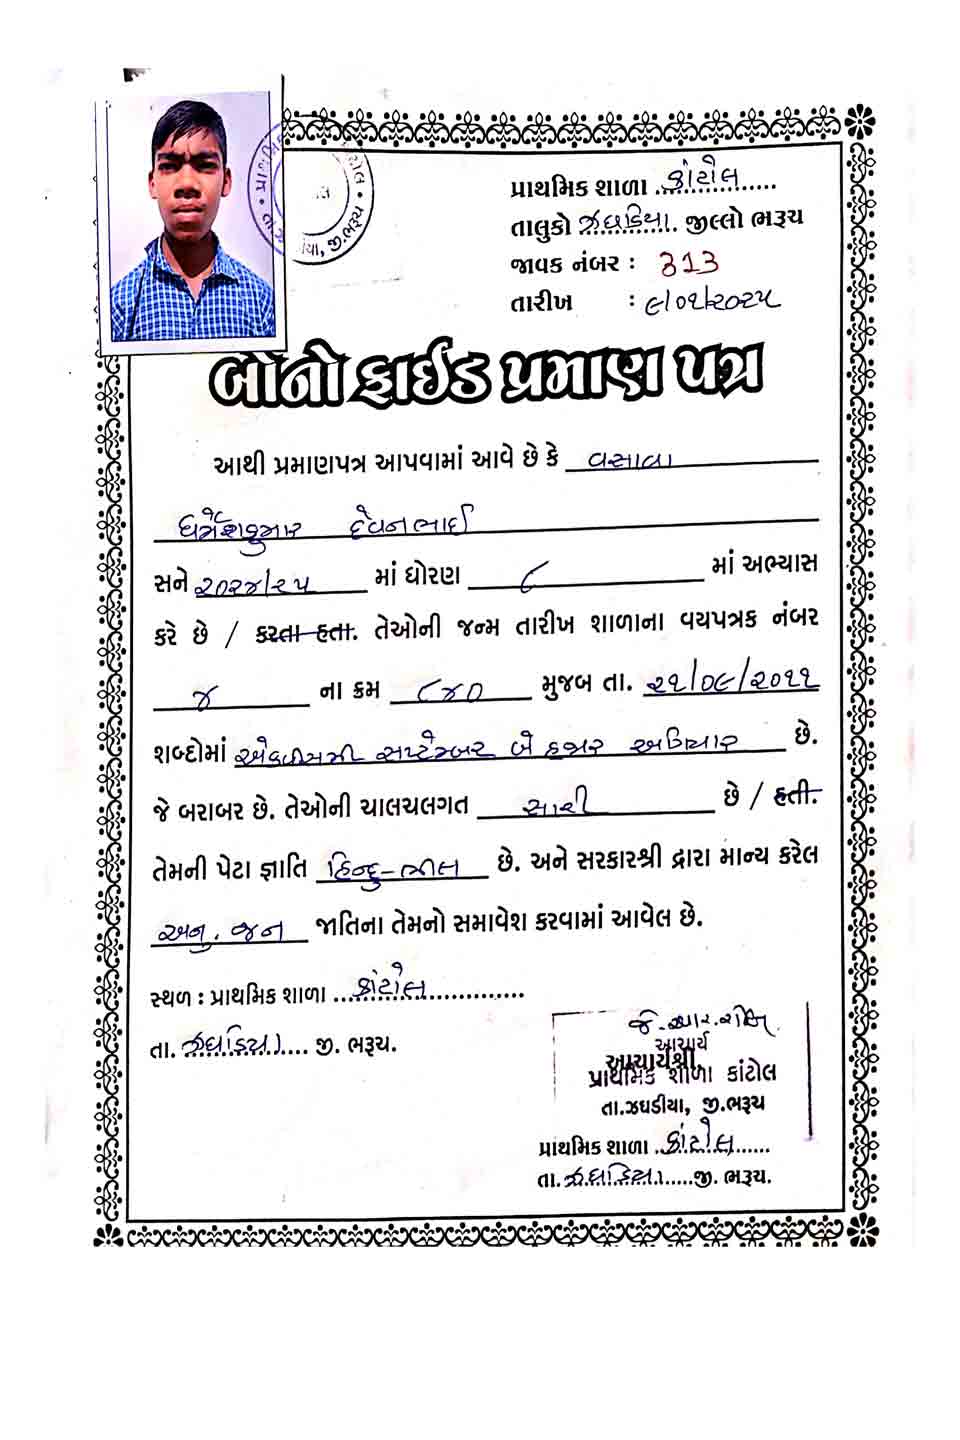 પ્રાથમિક શાળા ..કાંટોલ......
તાલુકો ઝઘડિયા. જીલ્લો ભરૂચ
જાવક નંબર : ૩૧૩
તારીખ : ૯/૦૧/૨૦૨૫
જી.ભરૂચ
બોનોફાઈડ પ્રમાણ પત્ર
આથી પ્રમાણપત્ર આપવામાં આવે છે કે વસાવા
ધર્મેશકુમાર દેવનભાઈ
સને ૨૦૨૪/૨૫ માં ધોરણ ૮ માં અભ્યાસ
કરે છે / કરતા હતા. તેઓની જન્મ તારીખ શાળાના વયપત્રક નંબર
૪ ના ક્રમ ૮૪૦ મુજબ તા. ૨૧/૦૯/૨૦૧૧
શબ્દોમાં એકવીસમી સપ્ટેમ્બર બે હજાર અગિયાર છે.
જે બરાબર છે. તેઓની ચાલચલગત સારી છે / હતી.
તેમની પેટા જ્ઞાતિ હિન્દુ-ભીલ છે. અને સરકારશ્રી દ્વારા માન્ય કરેલ
અનુ. જન જાતિના તેમનો સમાવેશ કરવામાં આવેલ છે.
સ્થળ : પ્રાથમિક શાળા ...કાંટોલ..............
તા. ઝઘડિયા.... જી. ભરૂચ.
જે.આર.
આચાર્ય
આચાર્યશ્રી
પ્રાથમિક શાળા કાંટોલ
તા.ઝઘડીયા, જી.ભરૂચ
પ્રાથમિક શાળા ..કાંટોલ......
તા. ઝઘડિયા.....જી. ભરૂચ.